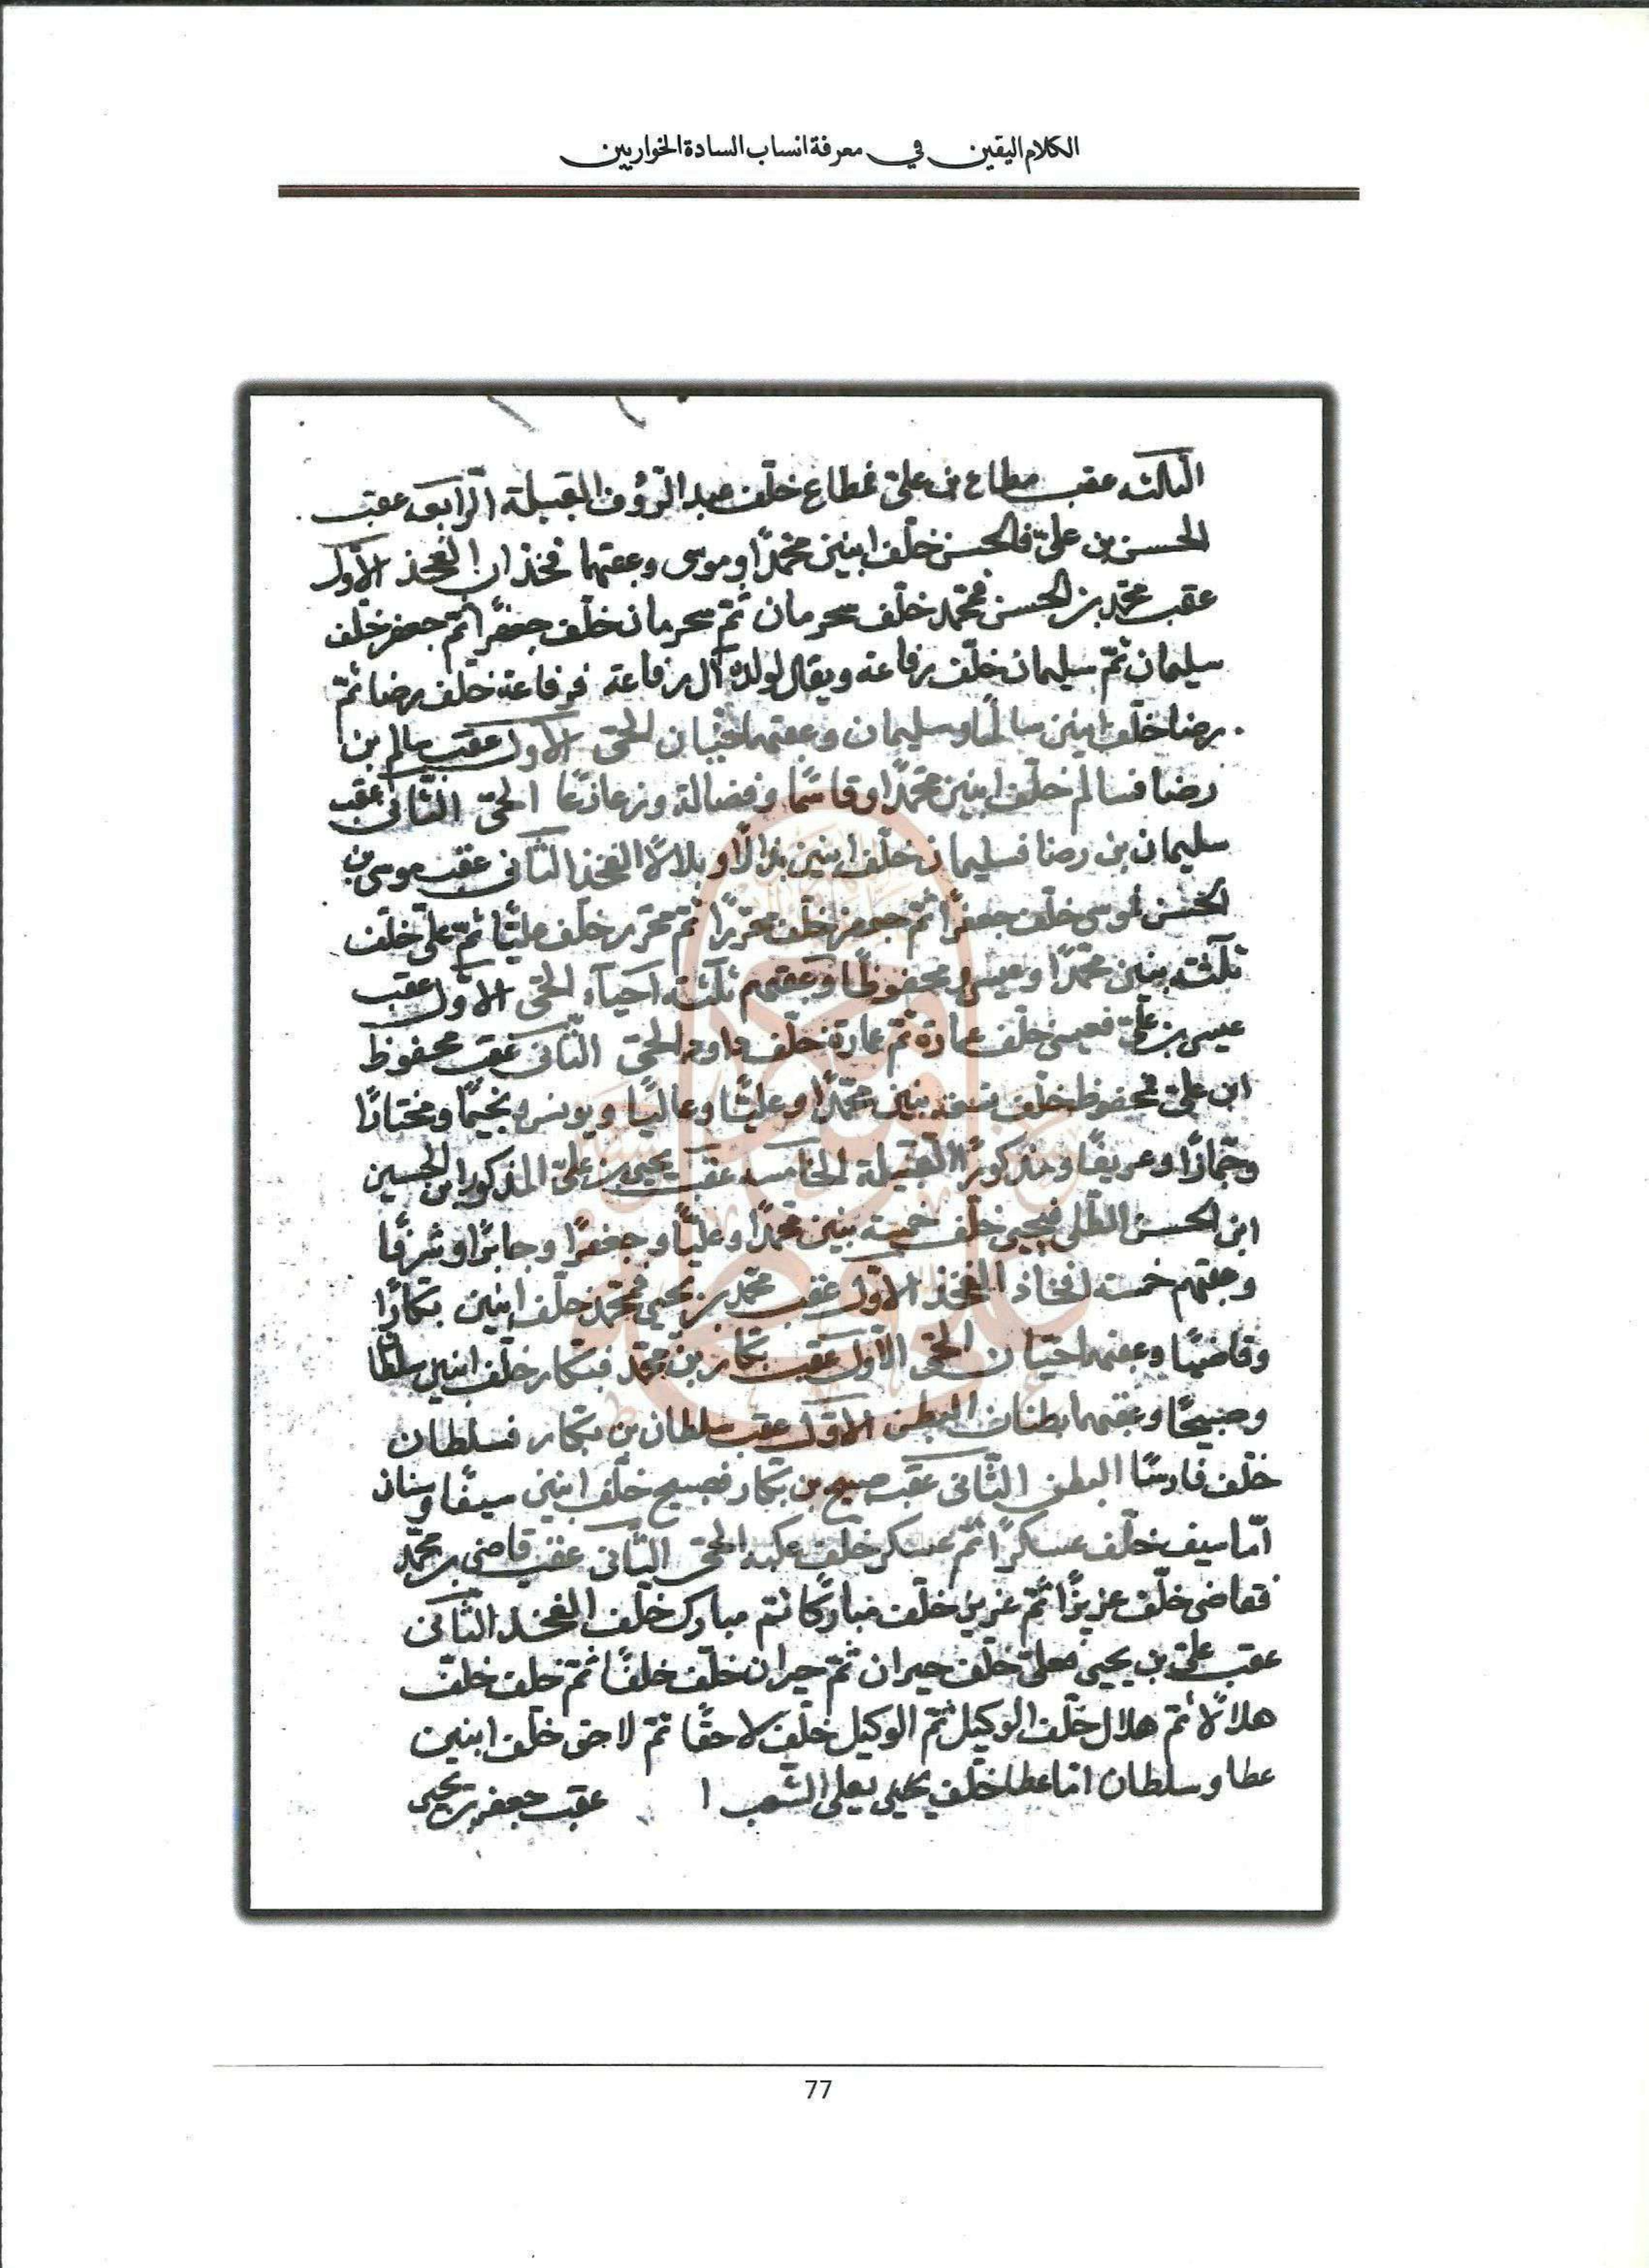 الكلام اليقين في معرفة انساب السادة الخواريين
الثالثه عقب مطاع بن على فمطاع خلّف عبد الرؤف القبيلة الرابعة عقب
الحسن بن علىّ فالحسن خلّف ابنين محمّدًا وموسى وعقبهما فخذان الفخذ الاوّل
عقب محمّد بن الحسن فمحمّد خلّف سحرمان ثمّ سحرمان خلّف جعفرًا ثم جعفر خلّف
سليمان ثمّ سليمان خلّف رفاعه ويقال لولده آل رفاعة فرفاعة خلّف رضا ثمّ
رضا خلّف ابنين سالمًا وسليمان وعقبهما حيّان الحىّ الاوّل عقب سالم بن
رضا فسالم خلّف ابنين محمّدًا وقاسمًا وفضالة الحىّ الثّانى عقب
سليمان بن رضا فسليمان خلّف ابنين وبلالًا الفخذ الثّانى عقب موسى بن
الحسن فموسى خلّف جعفرًا ثمّ جعفر خلّف محرّرًا ثمّ محرّر خلّف عليًّا ثمّ علىّ خلّف
ثلثة بنين محمّدًا وعيسى ومحفوظًا وعقبهم ثلثة احيآء الحىّ الاوّل عقب
عيسى بن علىّ فعيسى خلّف عمارة ثمّ عمارة خلّف داود الحىّ الثّانى عقب محفوظ
ابن علىّ فمحفوظ خلّف تسعة بنين محمّدًا وعليًّا وعاليًا ويونس ونجيمًا ومختارًا
وحمّادًا وعريفًا ومذكورًا القبيلة الخامسه عقب يحيى بن علىّ المذكور ابن الحسين
ابن الحسن فيحيى خلّف خمسة بنين محمّدًا وعليًّا وجعفرًا وجابرًا وشرفًا
وعقبهم خمسة افخاذ الفخذ الاوّل عقب محمّد بن يحيى فمحمّد خلّف ابنين بكّارًا
وقاضيًا وعقبهما حيّان الحىّ الاوّل عقب بكّار بن محمّد فبكّار خلّف ابنين سلطانا
وصبيحًا وعقبهما بطنان البطن الاوّل عقب سلطان بن بكّار فسلطان
خلّف فارسًا البطن الثّانى عقب صبيح بن بكّار فصبيح خلّف ابنين سيفًا وسنان
امّا سيف خلّف عسكرًا ثمّ عسكر خلّف عكبه الحىّ الثّانى عقب قاضى بن محمّد
فقاضى خلّف عزيزًا ثمّ عزيز خلّف مباركًا ثمّ مبارك خلّف الفخذ الثّانى
عقب علىّ بن يحيى فعلىّ خلّف جيران ثمّ جيران خلّف خلفًا ثمّ خلف خلّف
هلالًا ثمّ هلال خلّف الوكيل ثمّ الوكيل خلّف لاحقًا ثمّ لاحق خلّف ابنين
عطا وسلطان امّا عطا خلّف يحيى عقب جعفر بن يحيى
77